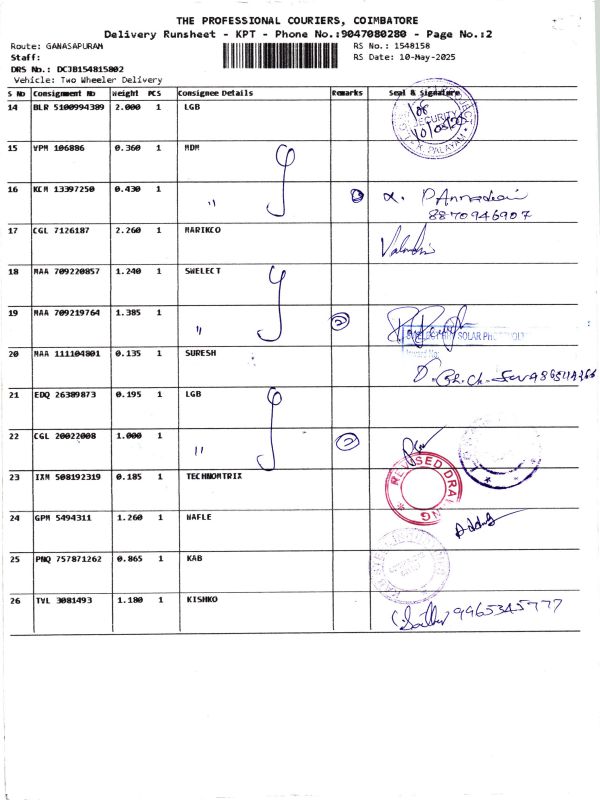 THE PROFESSIONAL COURIERS, COIMBATORE
Delivery Runsheet - KPT - Phone No.:9047080280 - Page No.:2
Route: GANASAPURAM RS No.: 1548158
Staff: RS Date: 10-May-2025
DRS No.: DCJB154815802
Vehicle: Two Wheeler Delivery
S No Consignment No Weight PCS Consignee Details Remarks Seal & Signature
14 BLR 5100994389 2.000 1 LGB
SECURITY
PALAYAM
15 VPM 106886 0.360 1 MDM
16 KCM 13397250 0.430 1 "
8870946907
17 CGL 7126187 2.260 1 MARIKCO
18 MAA 709220857 1.240 1 SWELECT
19 MAA 709219764 1.385 1 " 2
SOLAR
20 MAA 111104801 0.135 1 SURESH
21 EDQ 26389873 0.195 1 LGB
22 CGL 20022008 1.000 1 " 2
23 IXM 508192319 0.185 1 TECHNOMTRIX
REVISED DRAWING
24 GPM 5494311 1.260 1 NAFLE
25 PNQ 757871262 0.865 1 KAB
26 TVL 3081493 1.180 1 KISHKO
9965345777